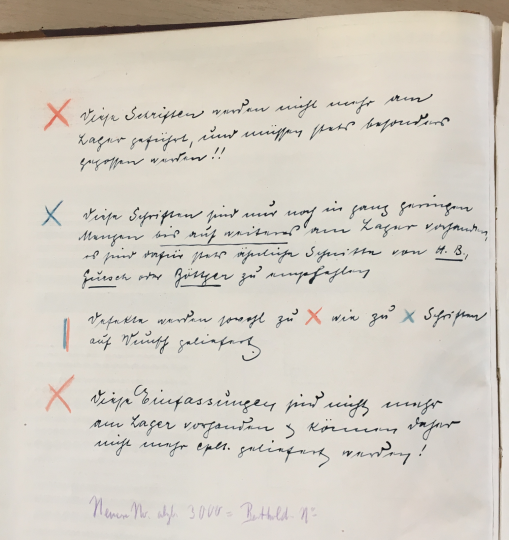 Diese Schriften werden nicht mehr am
Lager geführt, und müssen stets besonders
gegossen werden!!
Diese Schriften sind nur noch in ganz geringen
Mengen bis auf weiteres am Lager vorhanden,
es sind dafür stets ähnliche Schnitte von H. B.,
Gursch oder Böttger zu empfehlen
Defekte werden sowohl zu X wie zu X Schriften
auf Wunsch geliefert.
Diese Einfassungen sind nicht mehr
am Lager vorhanden & können daher
nicht mehr cplt. geliefert werden!
Neue Nr. 3000 = Berthold Nº